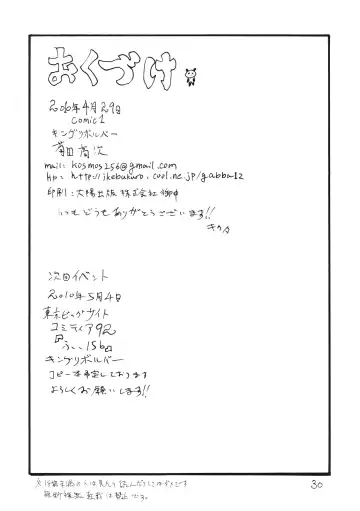 おくづけ
2010年4月29日
comic1
キングリボルバー
菊田尚次
mail: kosmos256@gmail.com
Hp: http://ikebukuro.cool.ne.jp/gabba12
印刷: 太陽出版株式会社御中
いつもどうもありがとうございます!!
キクタ
次回イベント
2010年5月4日
東京ビッグサイト
コミティア92
ふ 15b
キングリボルバー
コピー本予定しております
よろしくお願いします!!
無断複製転載は禁止です。
30